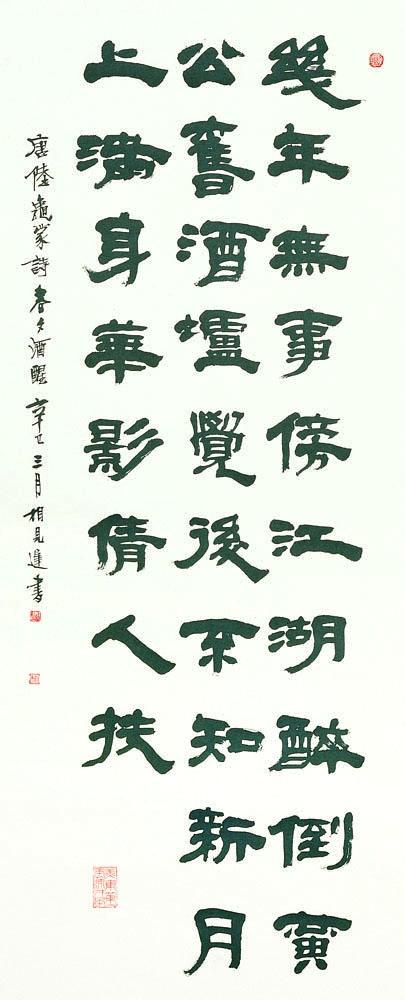 幾年無事傍江湖醉倒黃
公舊酒壚覺後不知新月
上滿身華影倩人扶
唐陸龜蒙詩春夕酒醒辛巳三月相見進書